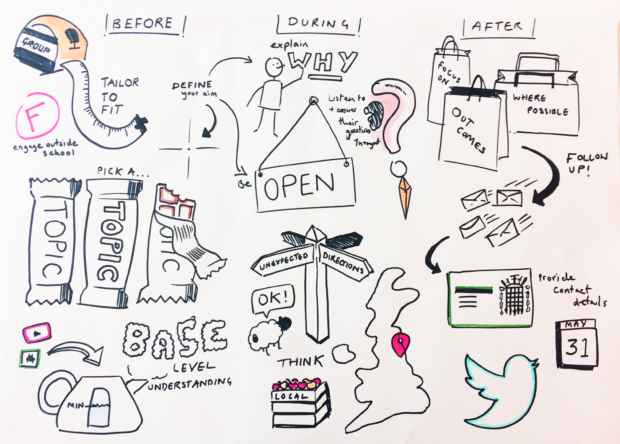 BEFORE
GROUP
TAILOR
TO
FIT
F
engage outside
school
PICK A...
TOPIC
TOPIC
TOPIC
#
BASE
LEVEL
UNDERSTANDING
MIN
DURING
explain
WHY
DEFINE
your aim
Listen to
+ answer
their
questions
throughout
Be
OPEN
UNEXPECTED
DIRECTIONS
OK!
THINK
LOCAL
AFTER
FOCUS
ON
OUT
COMES
WHERE
POSSIBLE
FOLLOW
UP!
Provide
contact
details
MAY
31